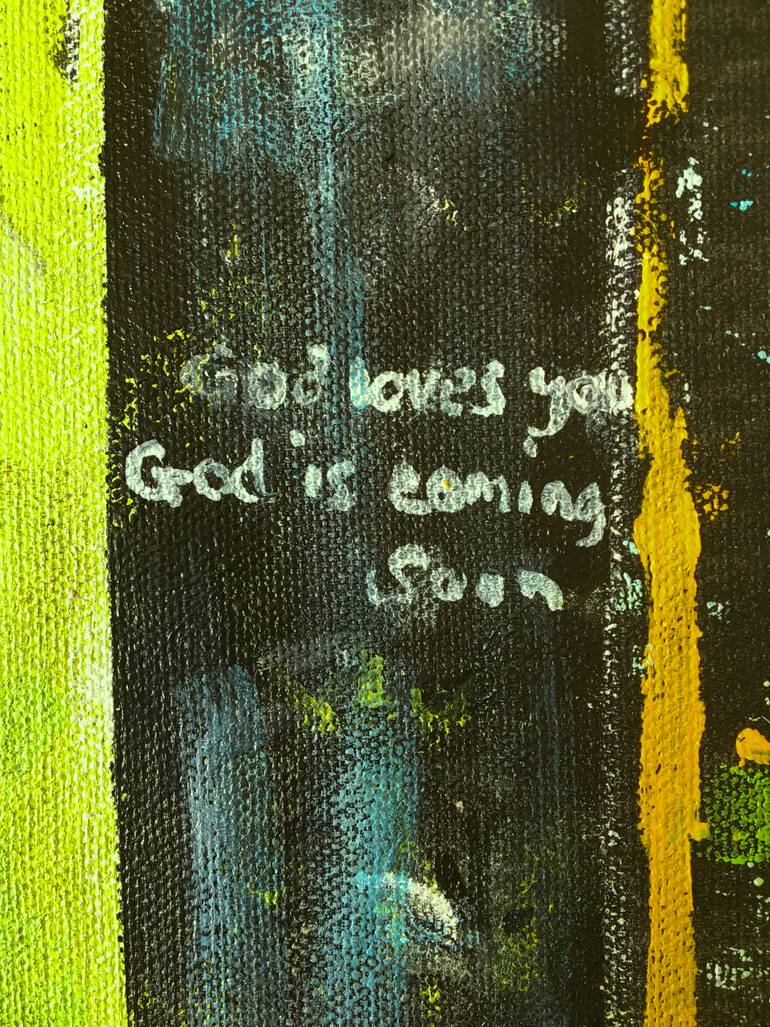 God loves you
God is coming
Soon